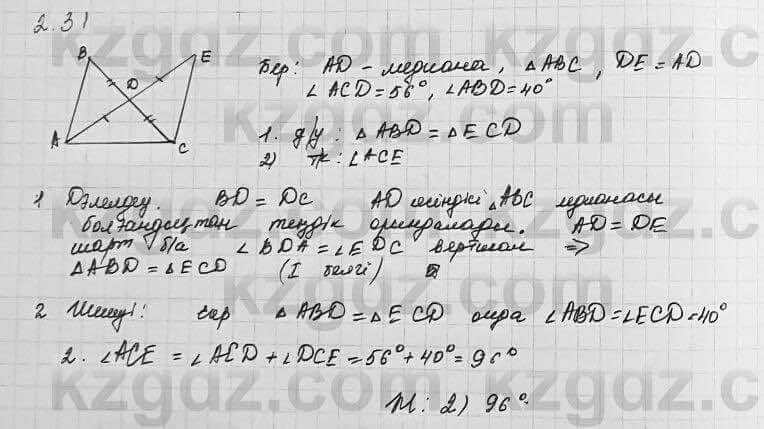 2.31
B E
D
A C
Бер: AD - медиана, △ABC, DE = AD
∠ACD = 56°, ∠ABD = 40°
1. д/у: △ABD = △ECD
2) т/к: ∠ACE
1 Дәлелдеу. BD = DC AD кесіндісі △ABC медианасы
болғандықтан теңдік орындалады. AD = DE
шарт б/а ∠BDA = ∠EDC вертикал ⇒
△ABD = △ECD (I белгі)
2 Шешуі: егер △ABD = △ECD онда ∠ABD = ∠ECD = 40°
2. ∠ACE = ∠ACD + ∠DCE = 56° + 40° = 96°
Ж: 2) 96°
kzgdz.com